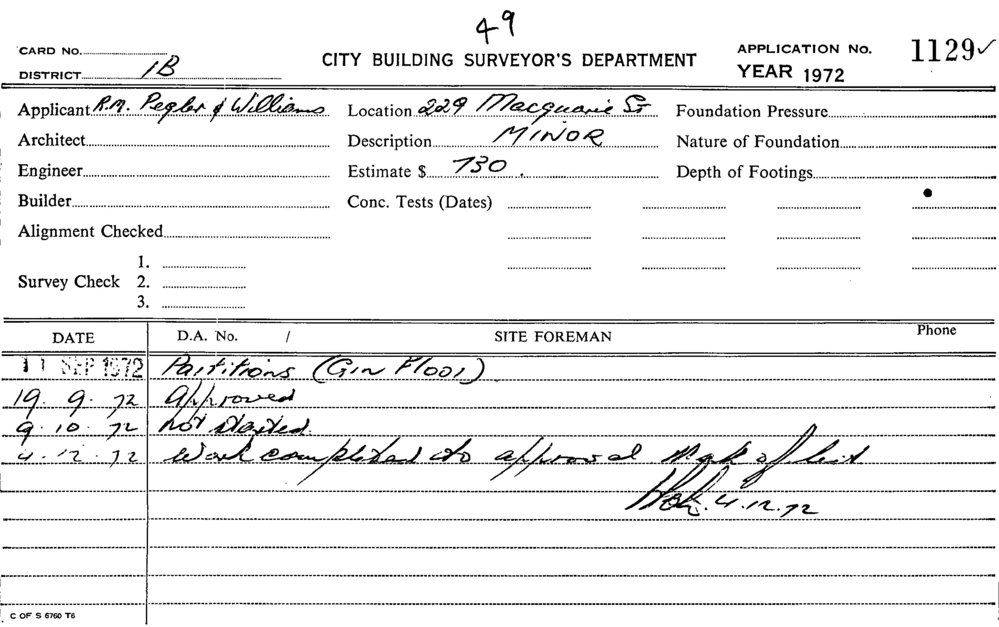 49
CARD No.
DISTRICT 1B
CITY BUILDING SURVEYOR'S DEPARTMENT
APPLICATION No. 1129 ✓
YEAR 1972
Applicant R.M. Pegler & Williams Location 229 Macquarie St Foundation Pressure
Architect Description MINOR Nature of Foundation
Engineer Estimate $ 730. Depth of Footings
Builder Conc. Tests (Dates)
Alignment Checked
Survey Check 1.
2.
3.
DATE D.A. No. / SITE FOREMAN Phone
11 SEP 1972 Partitions (Gin Floor)
19. 9. 72 Approved
9. 10. 72 not started.
4. 12. 72 Work completed to approval Mark off list
4.12.72
C OF S 6760 T6